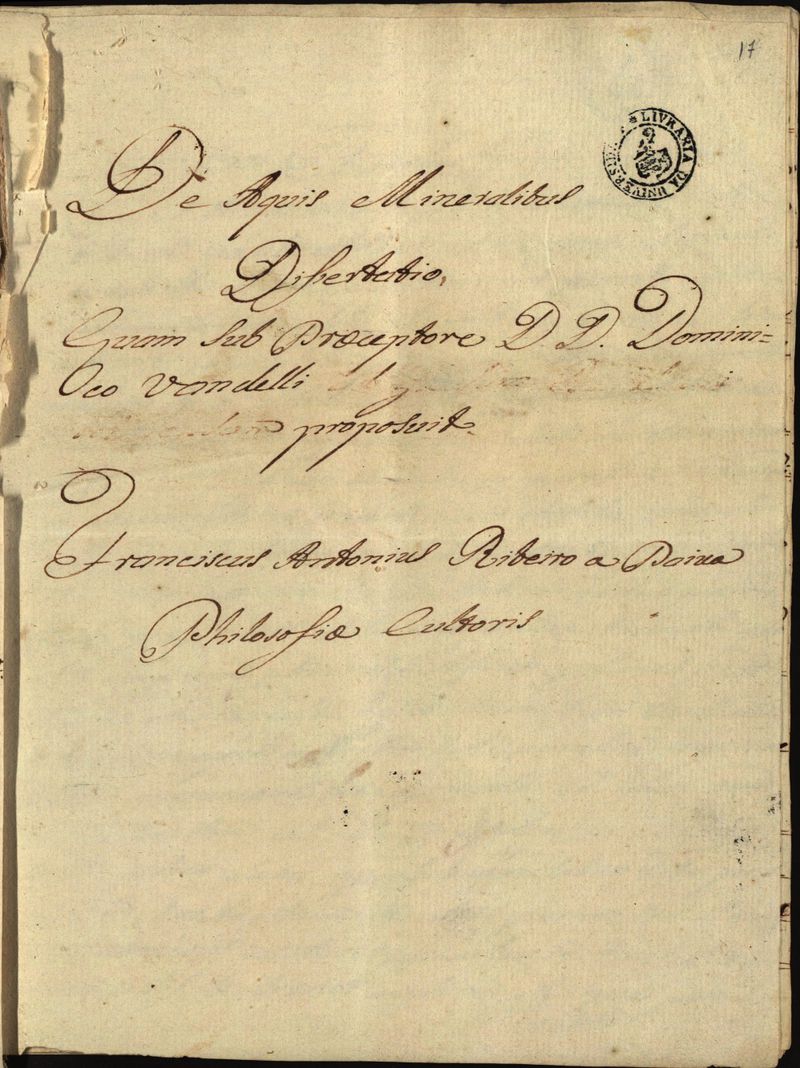 17
LIVRARIA DA
De Aquis Mineralibus
Dissertatio,
Quam sub Præceptore D D. Domini=
co Vandelli
proposuit
Franciscus Antonius Ribeiro a Paiva
Philosofiæ Cultoris